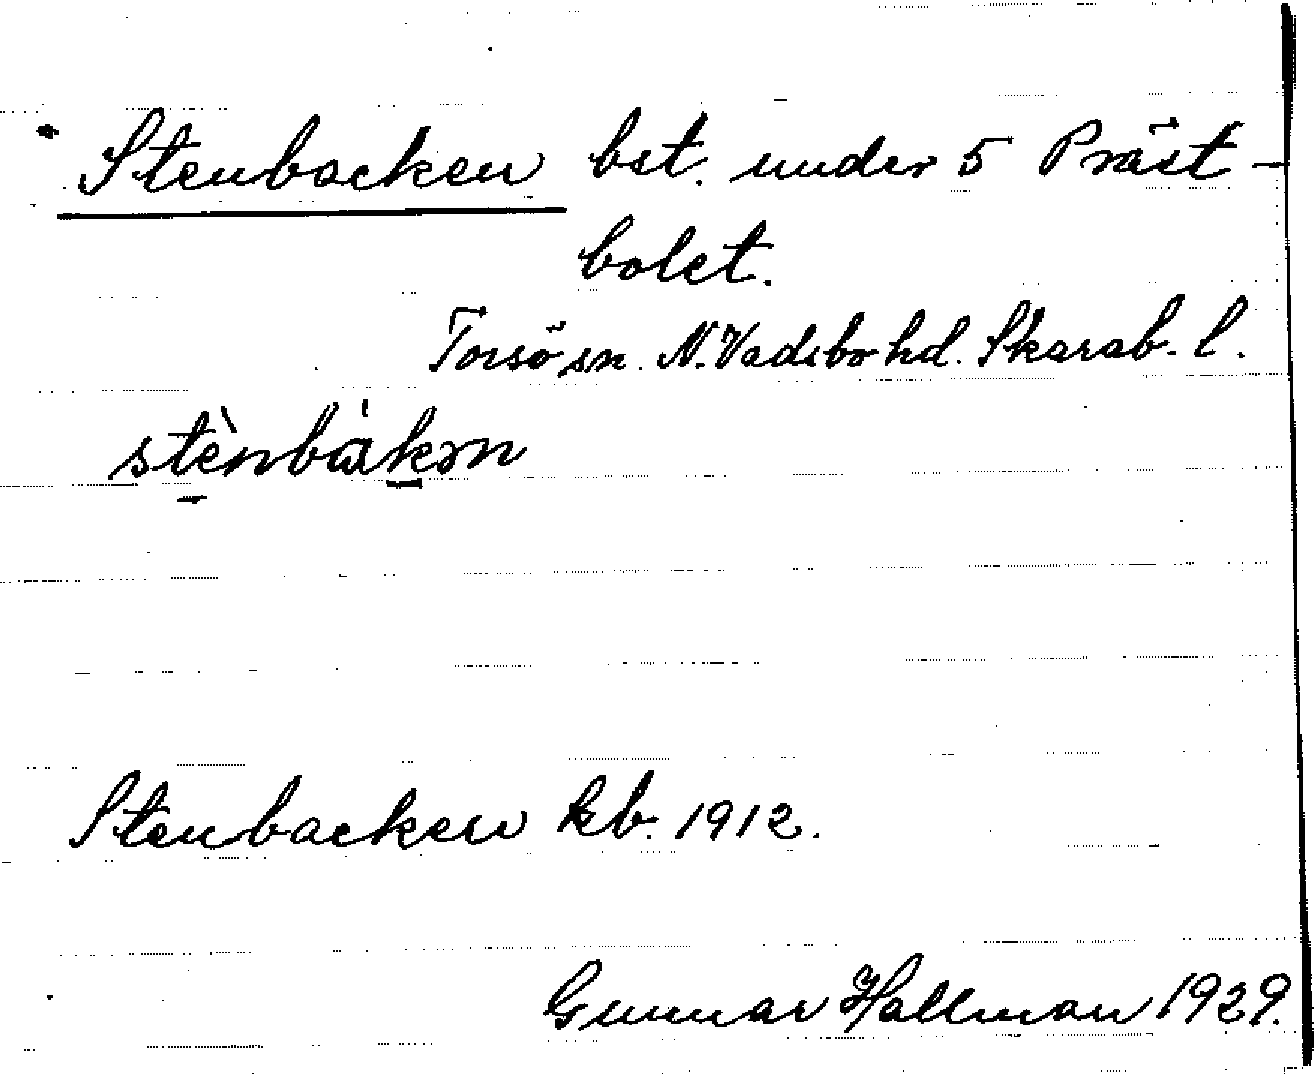 Stenbacken bst. under 5 Präst-
bolet.
Torsö sn. N. Vadsbo hd. Skarab. l.
stènbàkən
Stenbacken kb. 1912.
Gunnar Hallman 1929.